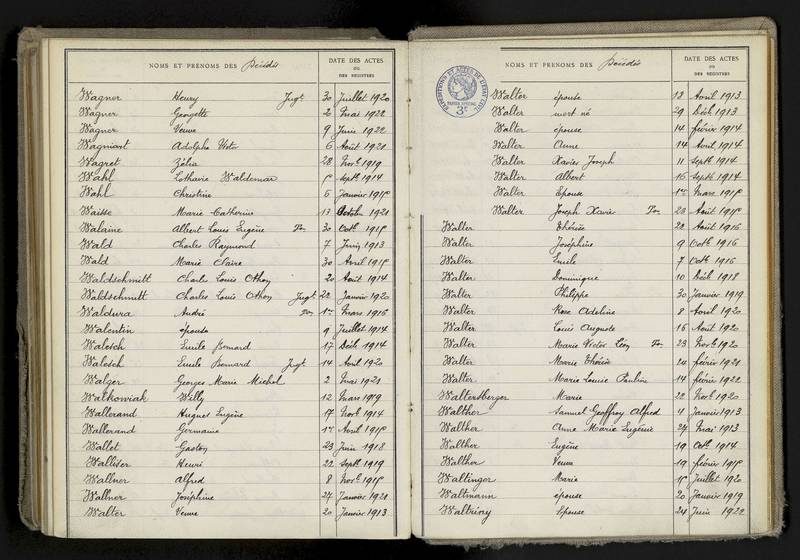 NOMS ET PRÉNOMS DES Décédés
DATE DES ACTES
OU
DES REGISTRES
Wagner Henry Jugt 30 Juillet 1920
Wagner Georgette 2 Mai 1922
Wagner Veuve 9 Juin 1922
Wagniart Adolphe 6 Août 1921
Wagret Zélia 28 Novb. 1919
Wahl Lothaire Waldemar Septb. 1914
Wahl Christine 6 Janvier
Waisse Marie Catherine 13 Octobre 1921
Walaine Albert Louis Eugène Ton 30 Octb.
Wald Charles Raymond 7 Juin 1913
Wald Marie Claire 30 Avril
Waldschmitt Charles Louis Othon 20 Août 1914
Waldschmitt Charles Louis Othon Jugt 22 Janvier 1920
Waldura André 1er Mars 1916
Walentin épouse 9 Juillet 1914
Walesch Emile Bernard 17 Décb. 1914
Walesch Emile Bernard Jugt 14 Avril 1920
Walger Georges Marie Michel 2 Mai 1921
Walkowiak Willy 12 Mars 1919
Wallerand Hugues Eugène 17 Novb. 1914
Wallerand Germaine 1er Avril
Wallet Gaston 23 Juin 1918
Walliser Henri 22 Septb. 1919
Wallner Alfred 8 Novb.
Wallner Joséphine 27 Janvier 1921
Walter Veuve 20 Janvier 1913
NOMS ET PRÉNOMS DES Décédés
DATE DES ACTES
OU
DES REGISTRES
EXPÉDITIONS ET ACTES DE L'ÉTAT CIVIL
3F
Walter épouse 13 Avril 1913
Walter mort né 29 Décb. 1913
Walter épouse 14 février 1914
Walter Anne 14 Avril 1914
Walter Xavier Joseph 11 Septb. 1914
Walter Albert 16 Septb. 1914
Walter Epouse 1er Mars
Walter Joseph Xavier Ton 23 Août
Walter Thérèse 22 Août 1916
Walter Joséphine 9 Octb. 1916
Walter Emile 7 Octb. 1916
Walter Dominique 10 Décb. 1918
Walter Philippe 30 Janvier 1919
Walter Rose Adeline 8 Avril 1920
Walter Louis Auguste 16 Août 1920
Walter Marie Victor Léon Ton 23 Novb. 1920
Walter Marie Thérèse 24 février 1921
Walter Marie Louise Pauline 14 février 1922
Waltersberger Marie 22 Novb. 1920
Walther Samuel Geoffroy Alfred 4 Janvier 1913
Walther Anne Marie Eugénie 27 Mai 1913
Walther Eugène 19 Octb. 1914
Walther Veuve 19 février
Waltinger Marie Juillet 1920
Waltmann épouse 20 Janvier 1919
Waltriny Epouse 24 Juin 1922